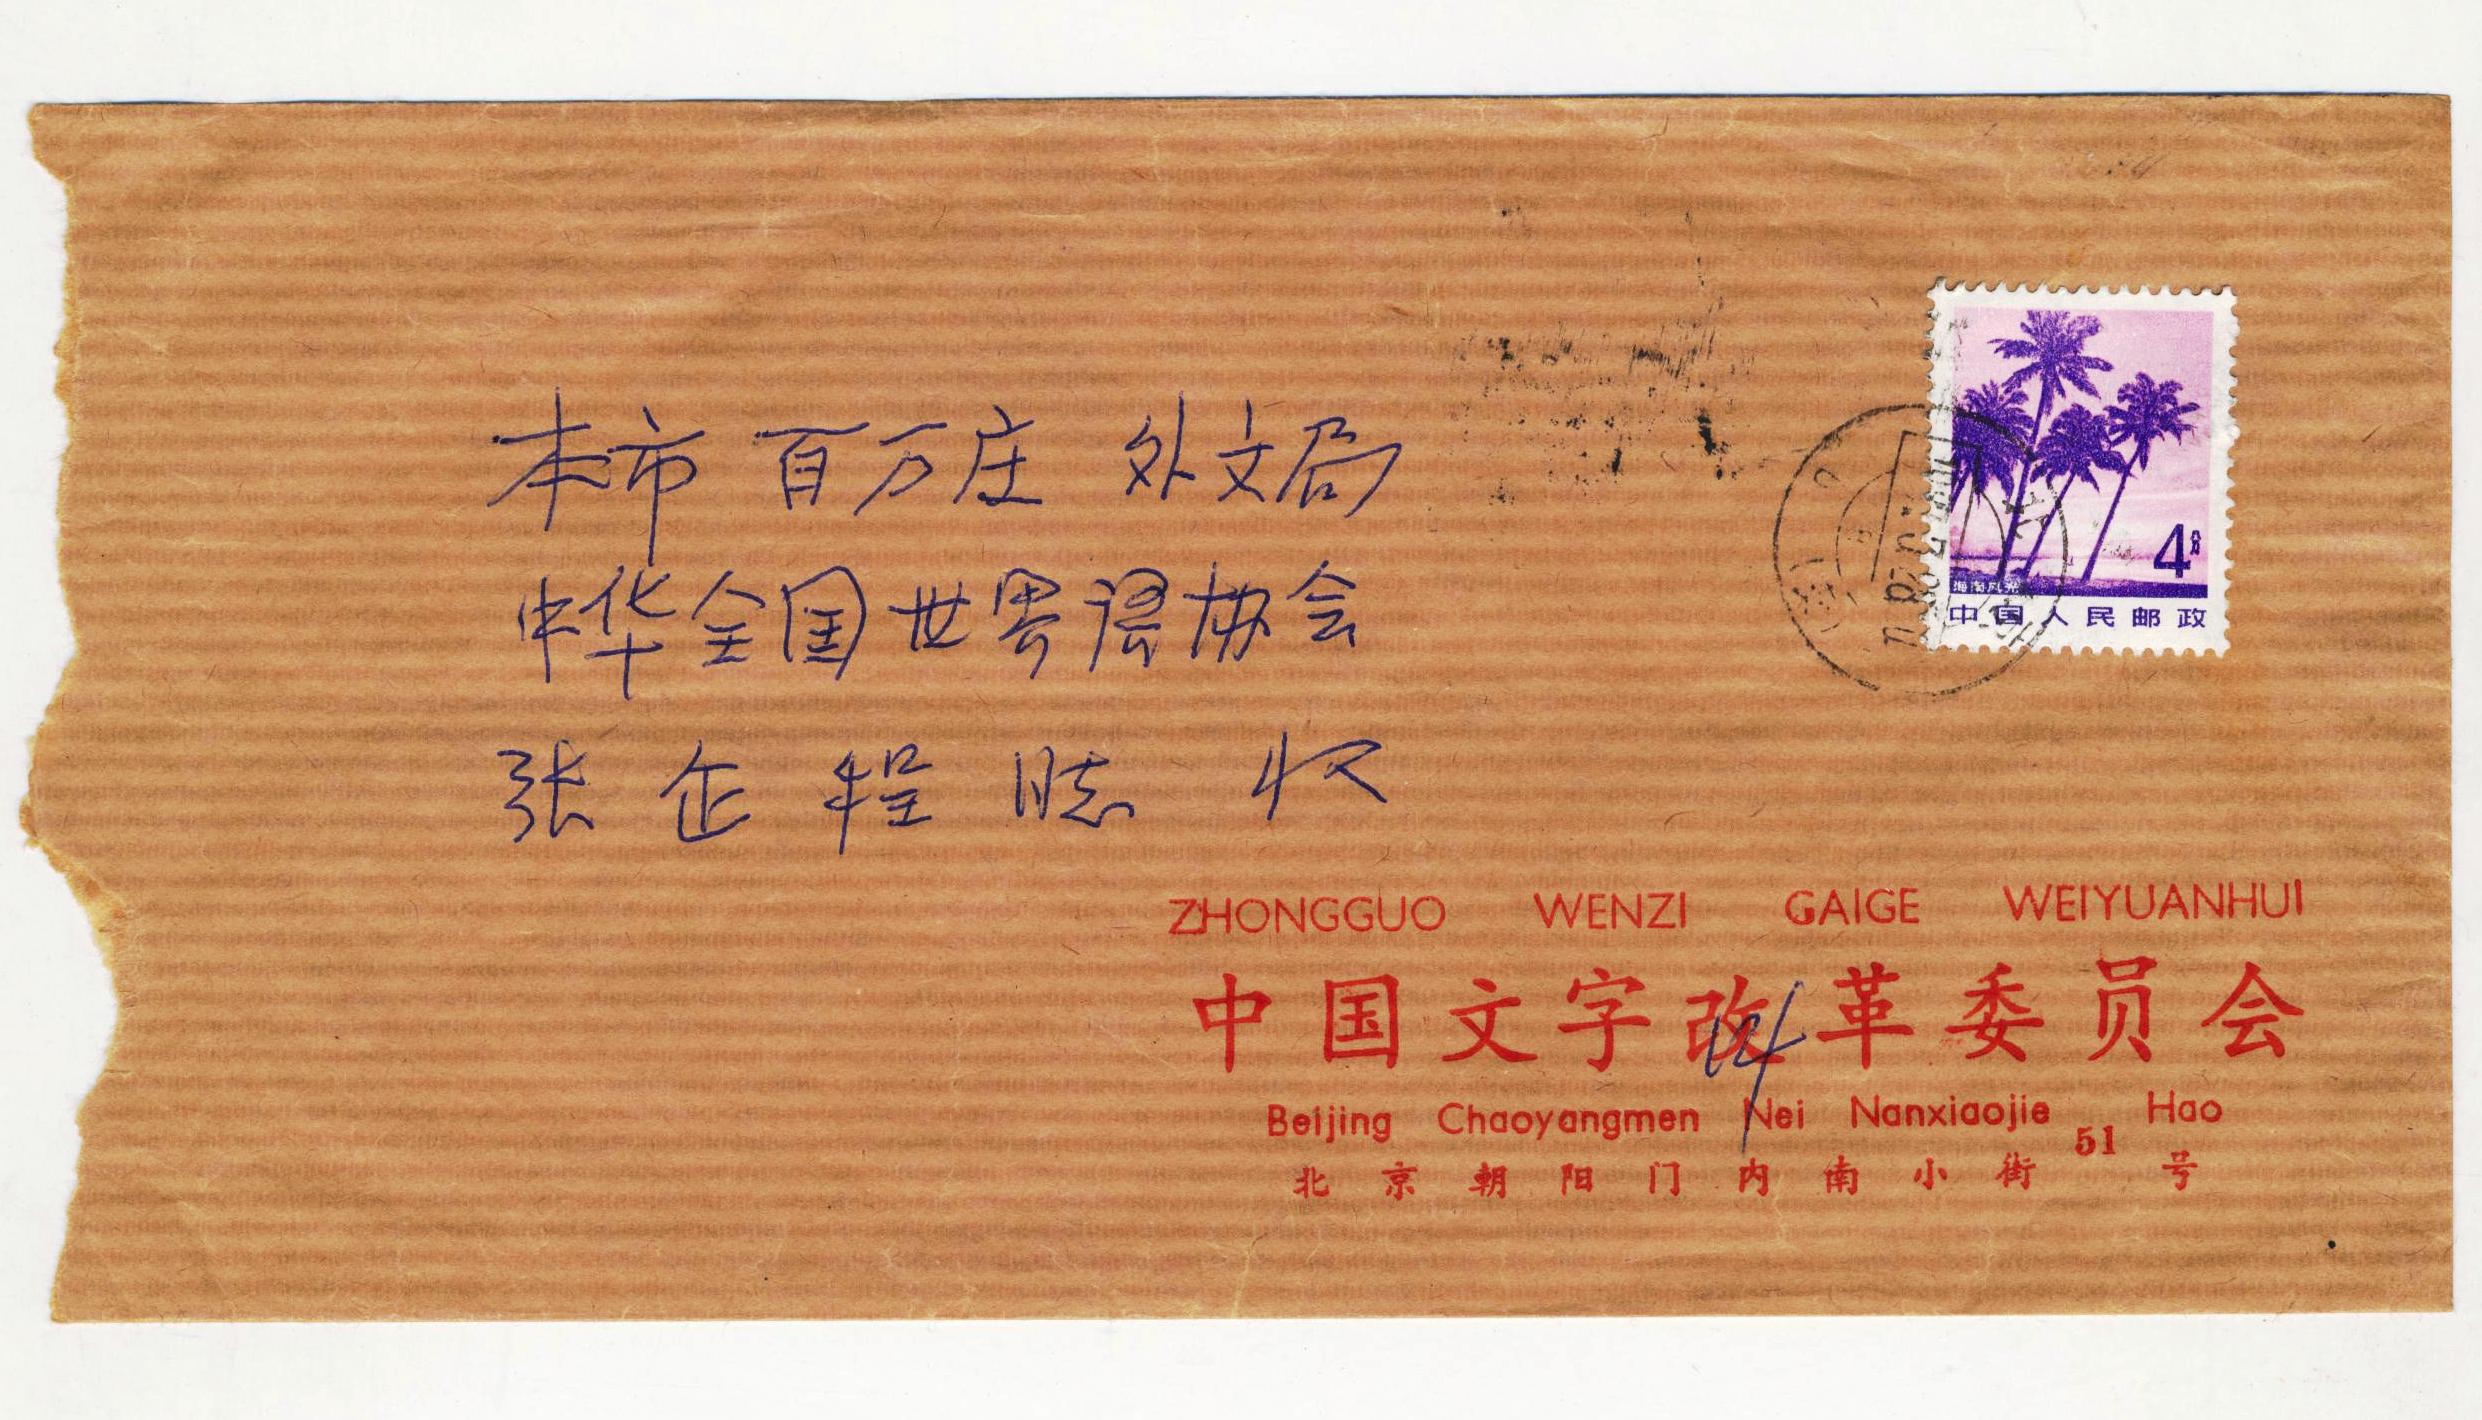 本市 百万庄 外文局
中华全国世界语协会
张企程 同志 收
4分
海南风光
中国人民邮政
ZHONGGUO WENZI GAIGE WEIYUANHUI
中国文字改革委员会
Beijing Chaoyangmen Nei Nanxiaojie 51 Hao
北京朝阳门内南小街 51 号